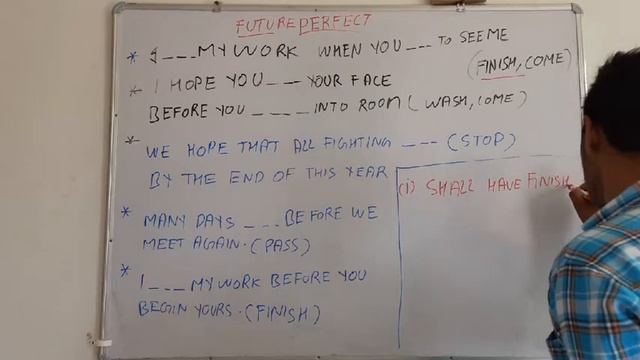 FUTURE PERFECT
* I ___ MY WORK WHEN YOU ___ TO SEE ME
(FINISH, COME)
* I HOPE YOU ___ YOUR FACE
BEFORE YOU ____ INTO ROOM (WASH, COME)
* WE HOPE THAT ALL FIGHTING ___ (STOP)
BY THE END OF THIS YEAR
(i) SHALL HAVE FINISH
* MANY DAYS ___ BEFORE WE
MEET AGAIN. (PASS)
* I ___ MY WORK BEFORE YOU
BEGIN YOURS. (FINISH)